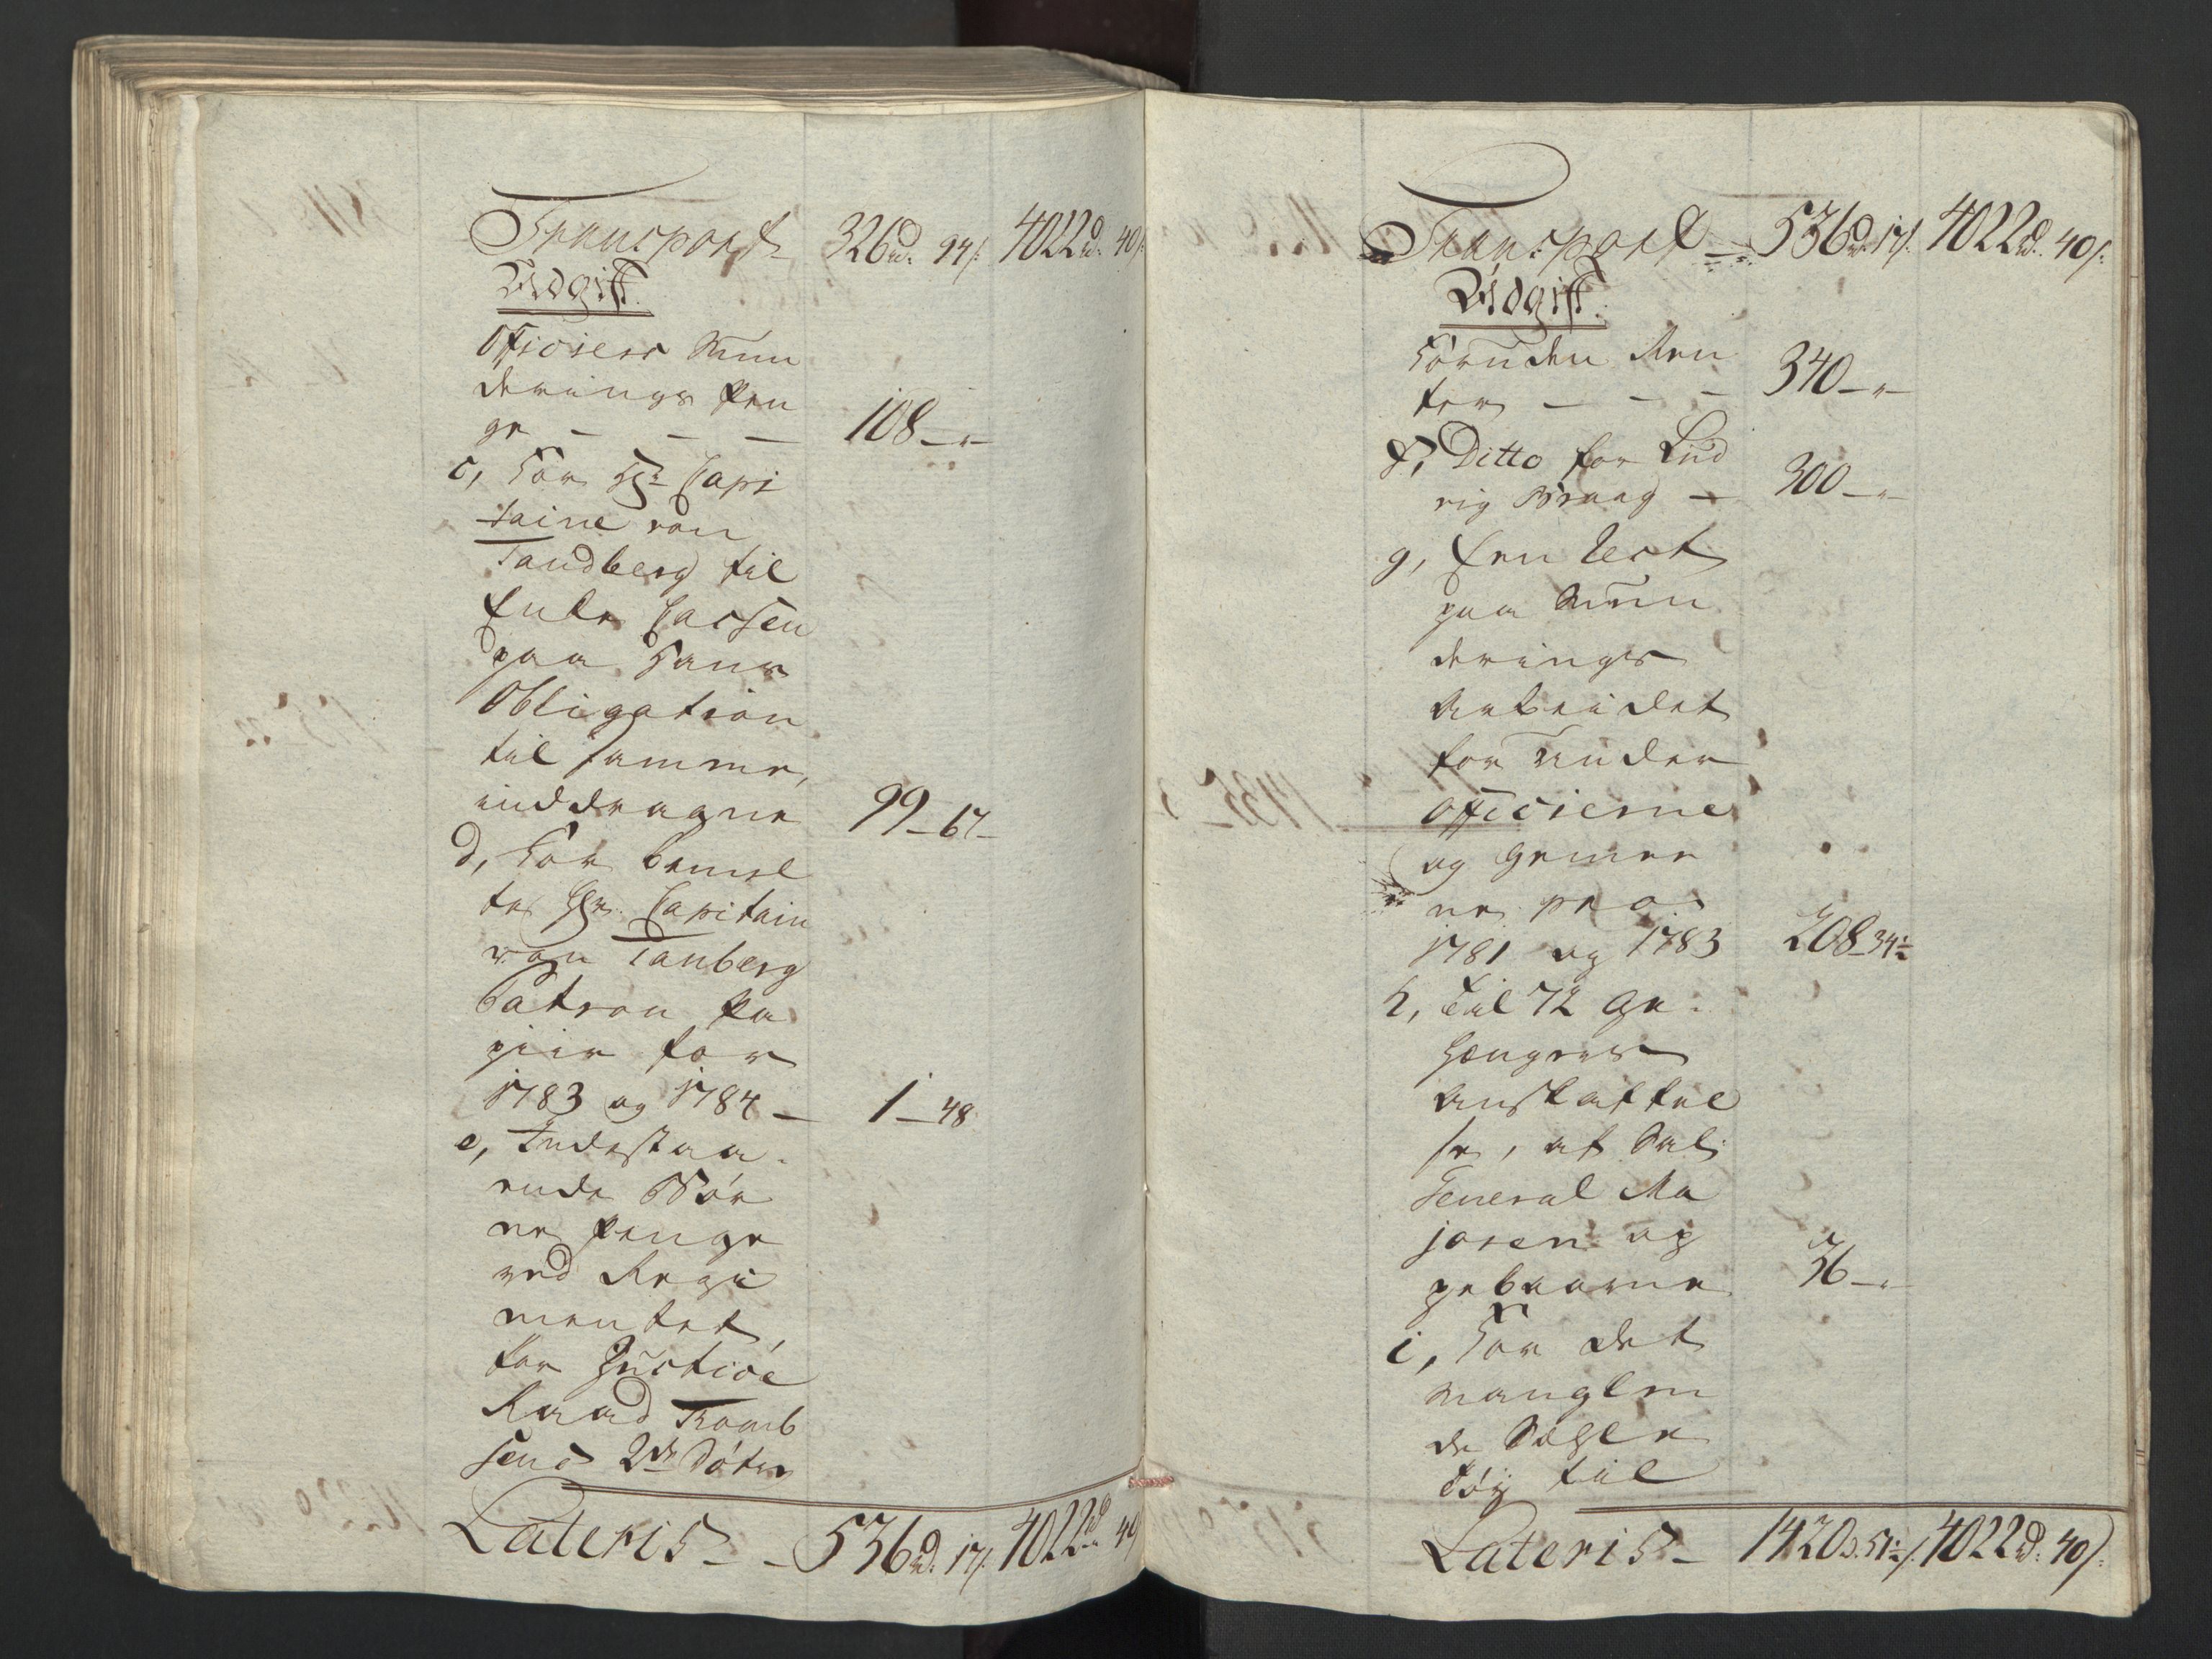 Transport 326 rd. 94 s. 4022 rd. 40 s.
Udgift.
Officiers Mun
derings Pen
ge — — — 108 - "-
c, For Hr. Capi
taine von
Tandberg til
Enke Cassen
paa Hans
Obligation
til samme,
inddragne 99 - 67 -
d, For bemel
te Hr. Capitain
von Tanberg
Patron Pa
piir for
1783 og 1784 — 1 - 48
e, Indestaa-
ende Bør
ne Penge
ved Regi
mentet,
for Justice
Raad
sens 2de Døtre
Lateris — 536 rd. 17 s. 4022 rd. 40
Transport — 536 rd. 17 s. 4022 rd. 40 s.
Udgift.
foruden Ren
ter — — — 340 - "-
f, Ditto for Lud
vig — 300 - "-
g, En Rest
paa Mun
derings
Arbeidet
for under
officierne
og Gemee
ne pro
1781 og 1783 208 - 34½
h, Til 72 Ge-
hængers
Anskaffel
se, af Sal:
General Ma
joren op
pebaarne 36 - "-
i, For det
manglen
de
tøy til
Lateris — 1420 d. 51½ s. 4022 rd. 40 s.